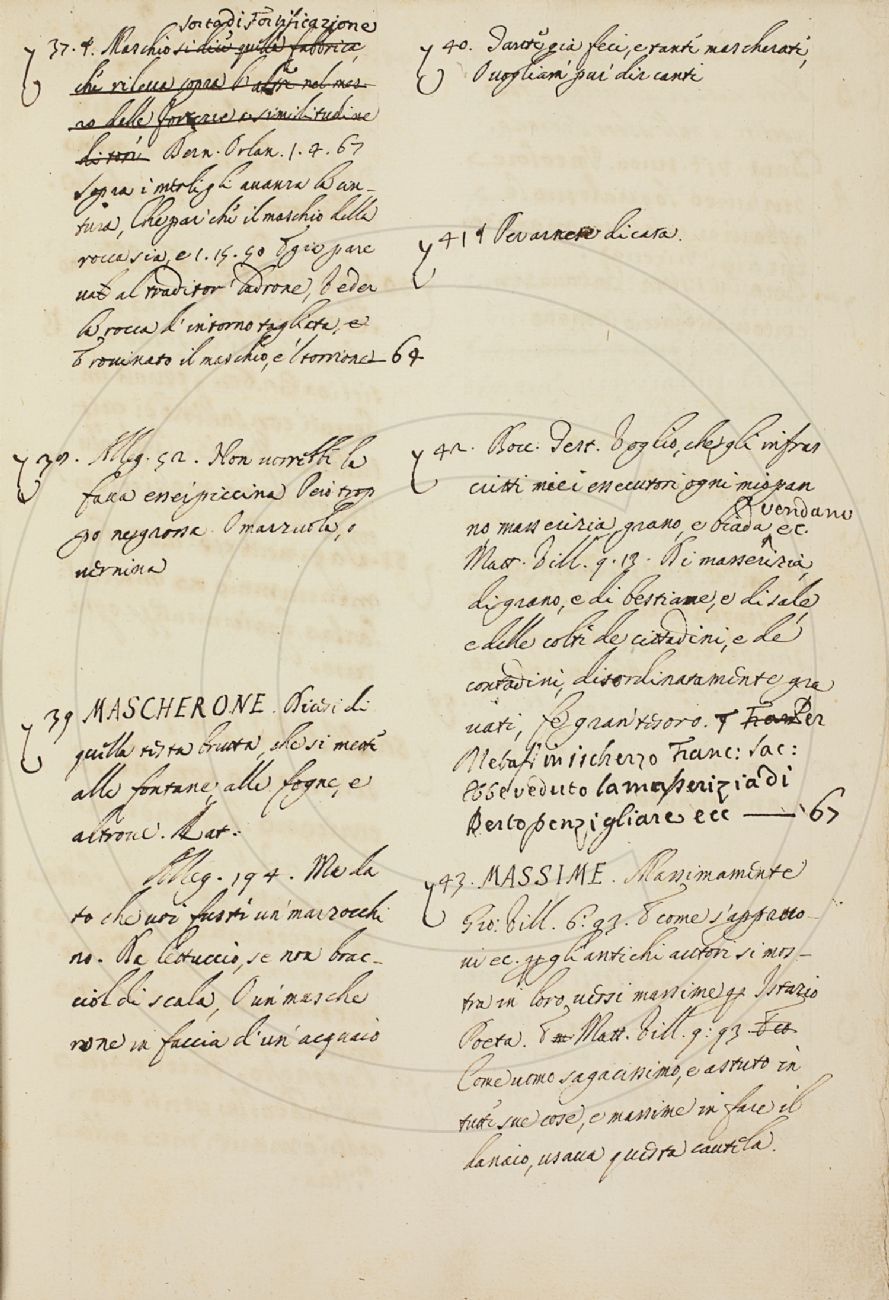 sorta di Fortificazione
37. ¶. Maschio si dice quella fabbrica,
che rileva sopra l'altre nel mez-
zo delle fortezze a similitudine
di torri Bern. Orlan. 1. 4. 67
Sopra i merli gli avanza la cin-
tura, Che par che il maschio della
rocca sia, e 1. 15. 50 E gio pare
va al traditor ladrone, Veder
la rocca d'intorno tagliata, e
Rovinato il maschio, e 'l torrione 64
38. Alleg. 52. Non vorrebbe la
fava essei piccina Però trop
po ne grossa O marzuola, o
vernina
39 MASCHERONE. Dicesi di
quella testa brutta, che si mette
alle fontane, alle fogne, e
altrove. Lat.
Alleg. 194. Ma da
to che voi fusti un' mazzocchi
no. Da lettuccio, se non brac-
ciol di scala, O un' masche
rone in faccia d'un' acquaio
40. Dante già feci, e tanti mascherati,
O vogliam' pur dir canti
41 ¶ Per arnese di casa.
42. Bocc. Test. Voglio, che gli infras
critti miei essecutori ogni mio pan
no, masserizia, grano, e biada ec.
vendano
Matt. Vill. 9. 13. Di masserizia,
di grano, e di bestiame, e di sale,
e delle colti de cittadini, e de'
contadini, disordinatamente gra
vati, fe gran' tesoro. ¶ Fran Per
Metaf in ischerzo Franc: Sac:
Ebbe veduto la masserizia di
Berto penzigliare ecc 67
43. MASSIME. Massimamente
Gio: Vill. 6. 93. E come s'appruo-
vi ec. gli antichi autori si mos-
tra in loro versi massime Istazio
Poeta. Matt. Vill. 9: 93.
Come uomo sagacissimo, e astuto in
tutte sue cose, e massime in fare il
danaio, usava questa cautela.